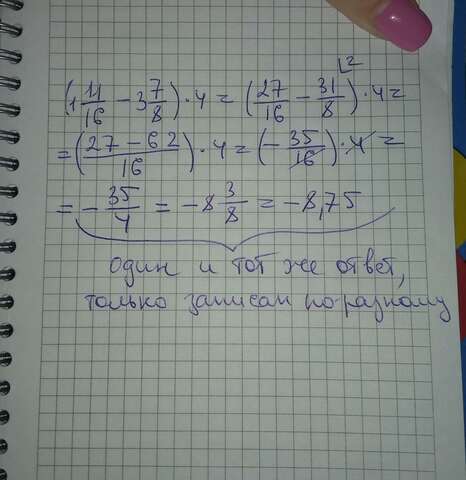 (1 11/16 - 3 7/8) · 4 = (27/16 - 31/8 ⌊2) · 4 =
= ((27 - 62)/16) · 4 = (- 35/16) · 4 =
= - 35/4 = - 8 3/8 = - 8,75
один и тот же ответ,
только записан по-разному